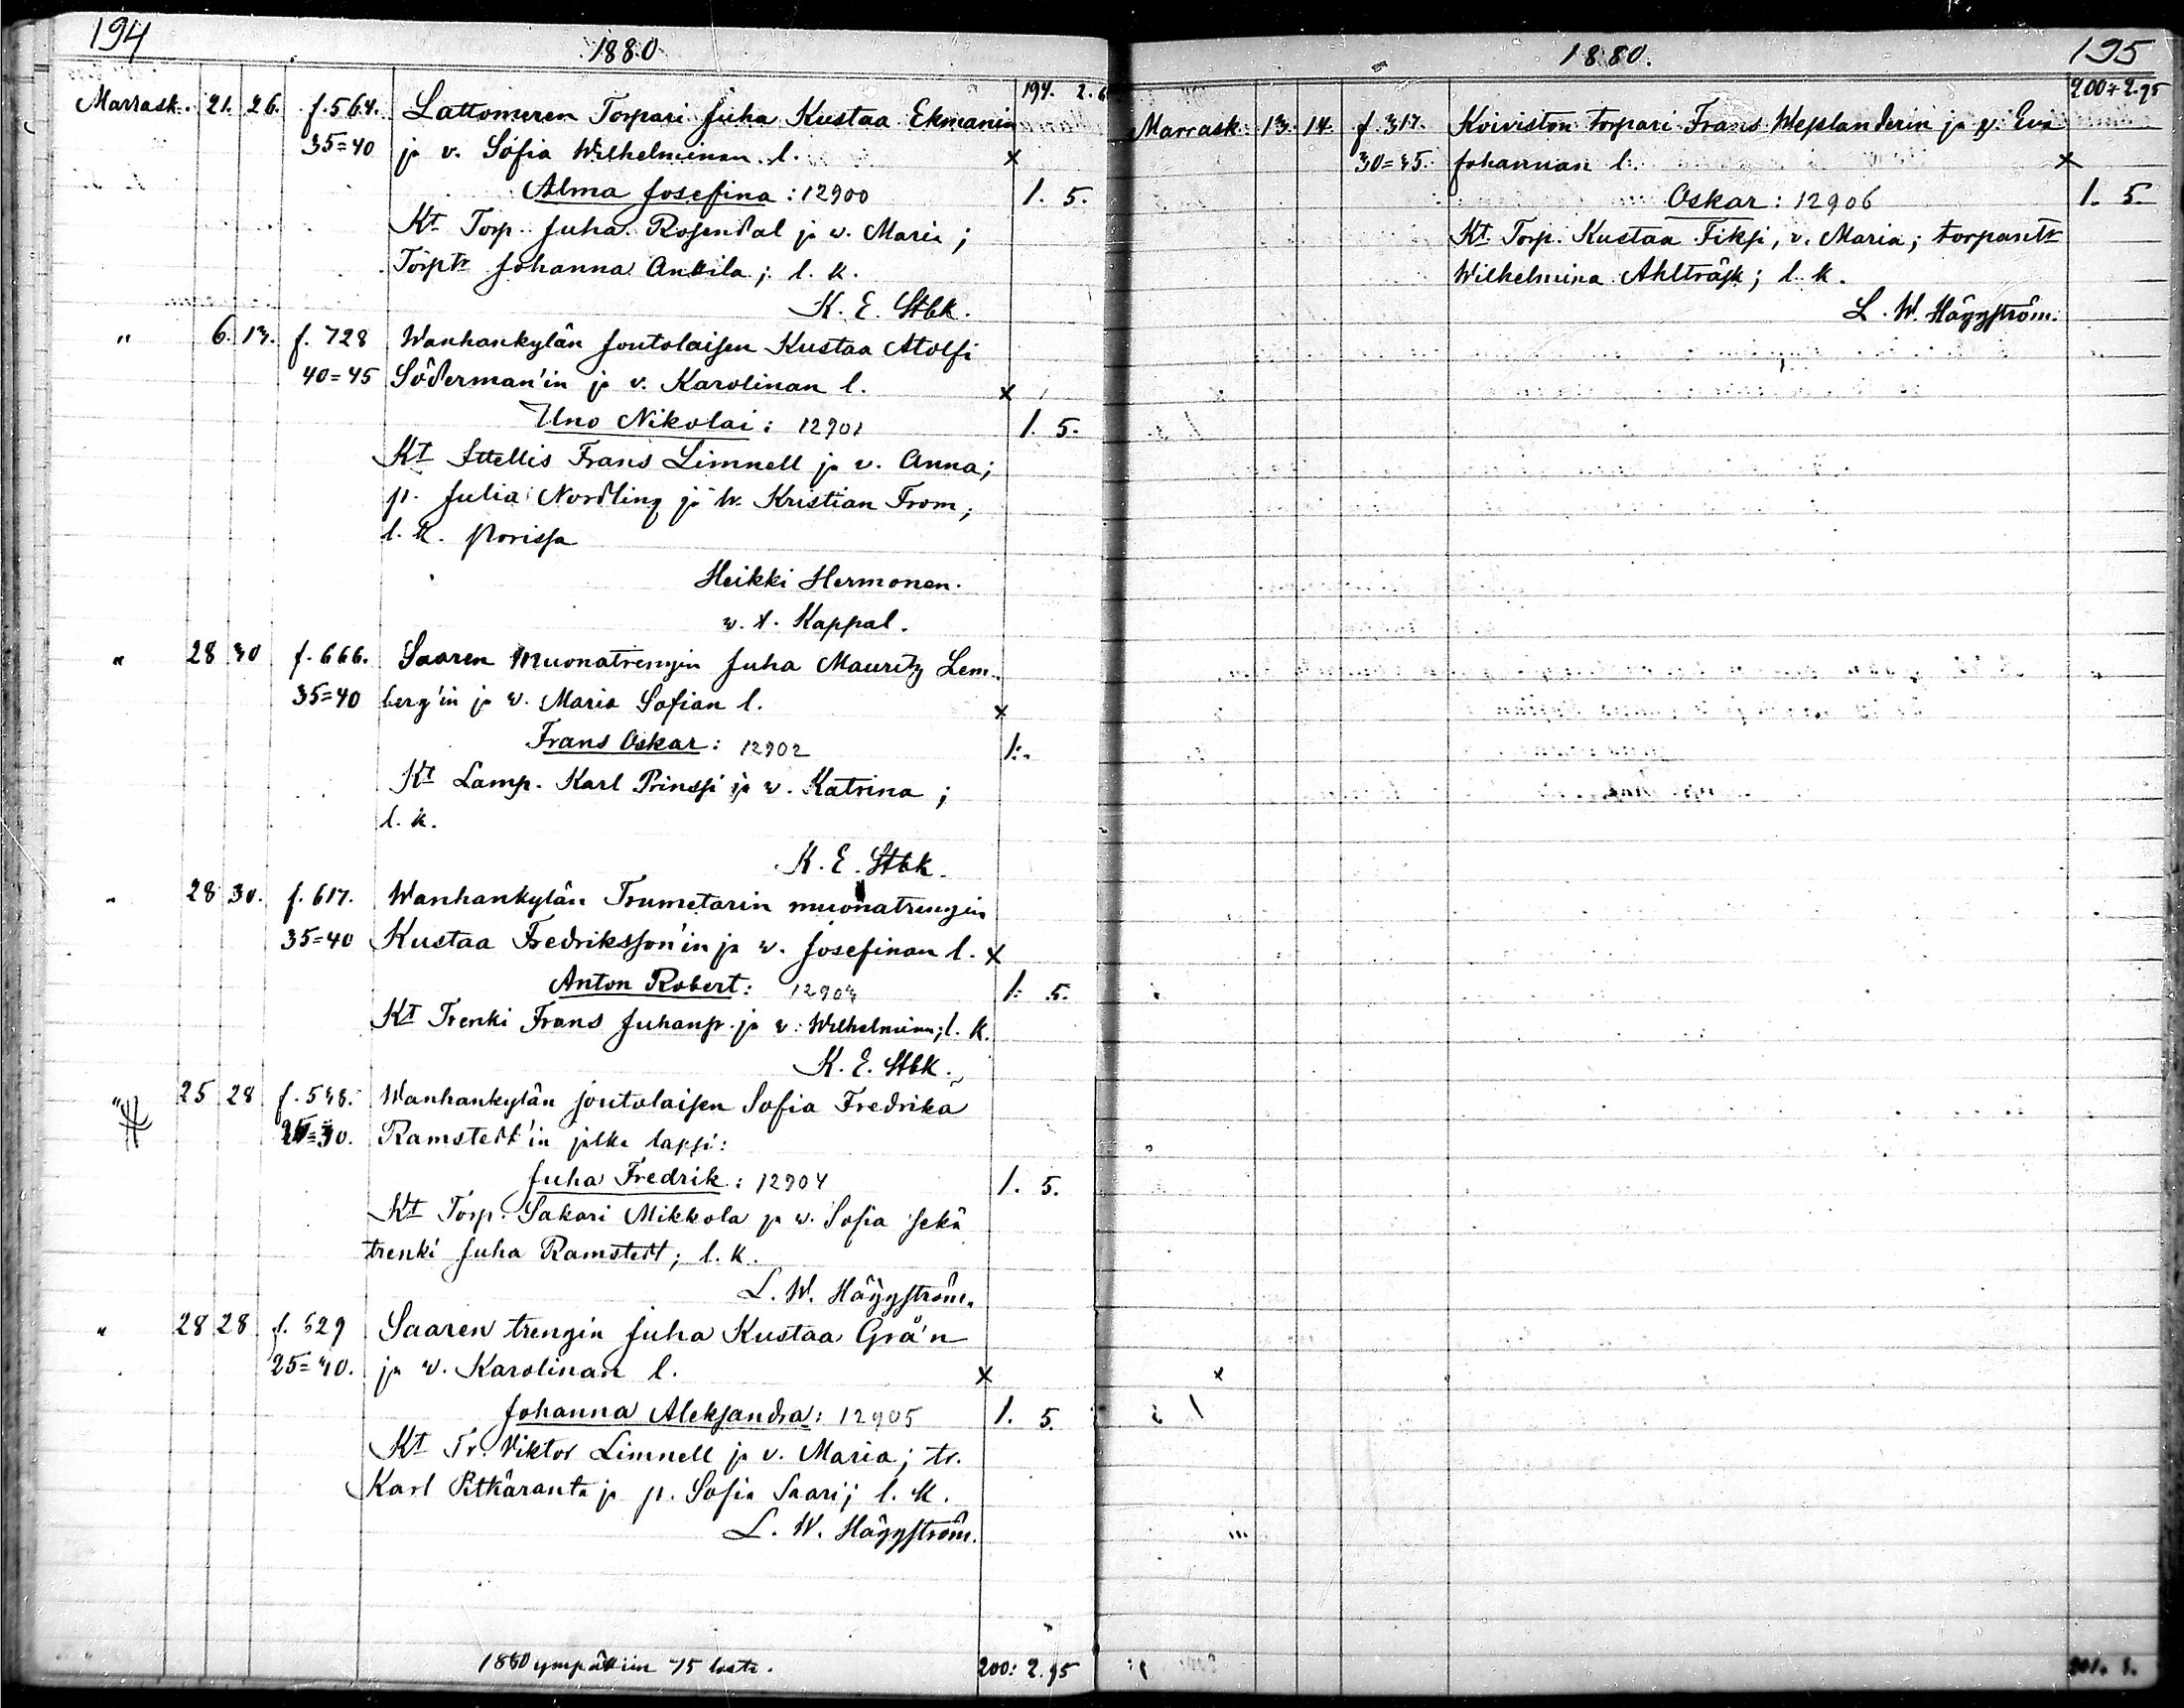 194
1880
194. 2.6
Marrask. 21. 26. f. 564. Lattomeren Torpari Juha Kustaa Ekmanin
35=40 ja v. Sofia Wilhelminan l. x
Alma Josefina : 12900 1. 5.
Kt Torp. Juha Rosendal ja w. Maria ;
Torptr Johanna Anttila ; l. k.
K. E. Stbk.
" 6. 13. f. 728 Wanhankylän Joutolaisen Kustaa Atolfi
40=45 Söderman'in ja v. Karolinan l. x
Uno Nikolai : 12901 1. 5.
Kt Ittellis Frans Limnell ja v. Anna ;
p. Julia Nordling ja w. Kristian From ;
l. k. Porissa
Heikki Hermonen.
w. t. Kappal.
" 28 30 f. 666. Saaren Muonatrengin Juha Mauritz Lem-
35=40 berg'in ja w. Maria Sofian l. x
Frans Oskar : 12902 1:
Kt Lamp. Karl Prinssi ja w. Katrina ;
l. k.
K. E. Stbk.
" 28 30. f. 617. Wanhankylän Trumetarin muonatrengin
35=40 Kustaa Fredriksson'in ja w. Josefinan l. x
Anton Robert : 12903 1: 5.
Kt Trenki Frans Juhanp. ja w. Wilhelmina ; l. k.
K. E. Stbk.
" 25 28 f. 538. Wanhankylän joutolaisen Sofia Fredrika
Ramstedt'in jälke lapsi :
Juha Fredrik : 12904 1. 5.
Kt Torp. Sakari Mikkola ja w. Sofia sekä
trenki Juha Ramstedt ; l. k.
L. W. Häggström.
" 28 28 f. 529 Saaren trengin Juha Kustaa Grå'n
25=30. ja w. Karolinan l. x
Johanna Aleksandra : 12905 1. 5.
Kt Tr. Viktor Limnell ja v. Maria ; tr.
Karl Pitkäranta ja p. Sofia Saari ; l. k.
L. W. Häggström.
1880 ympättiin 75 lasta. 200: 2.95
1880.
195
200+2.95
Marrask. 13. 14. f. 317. Koiviston torpari Frans Weslanderin ja v. Eva
30=35. Johannan l. x
Oskar : 12906 1. 5.
Kt Torp. Kustaa Fiksi, v. Maria ; torpantr
Wilhelmina Ahlträsk ; l. k.
L. W. Häggström.